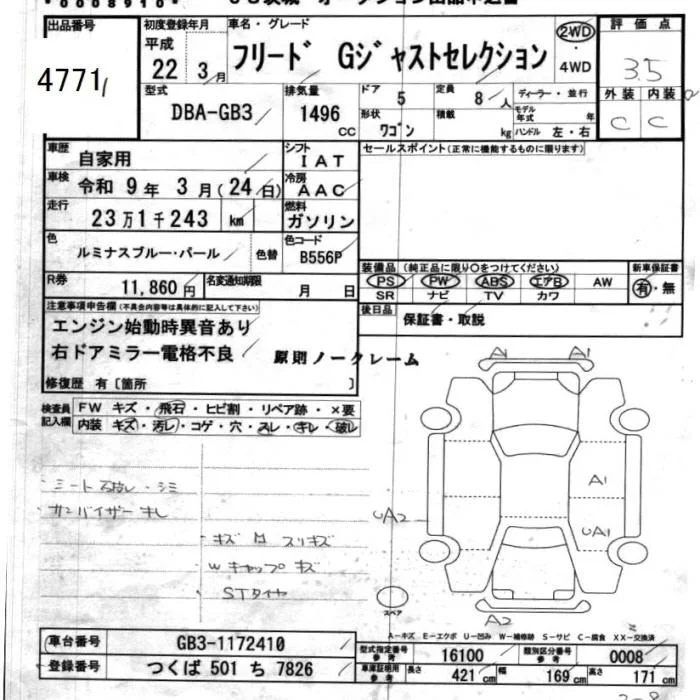 *0008910*
出品番号
4771
初度登録年月
平成
22 3月
車名・グレード
フリード Gジャストセレクション
2WD
・
4WD
評価点
3.5
外装 内装
C C
型式
DBA-GB3
排気量
1496
CC
ドア
5
定員
8人
ディーラー・並行
モデル年式 年
形状
ワゴン
積載
kg
ハンドル 左・右
車歴
自家用
シフト
IAT
セールスポイント(正常に機能するものに限ります)
車検
令和 9年 3月(24日)
冷房
AAC
走行
23万1千243 km
燃料
ガソリン
色
ルミナスブルー・パール
色替
色コード
B556P
装備品 (純正品に限り○をつけてください)
新車保証書
PS PW ABS エアB AW
SR ナビ TV カワ
有・無
R券
11,860円
名変通知期限
月 日
後日品
保証書・取説
注意事項申告欄(不具合内容等は具体的に記入して下さい)
エンジン始動時異音あり
右ドアミラー電格不良
原則ノークレーム
修復歴 有〔箇所 〕
検査員記入欄
FW キズ・飛石・ヒビ割・リペア跡・×要
内装 キズ・汚レ・コゲ・穴・スレ・キレ・破レ
A1 A1
シート破レ・シミ
サンバイザーキレ
A1
UA2
UA1
キズ 凹 スリキズ
Wキャップキズ
STタイヤ
スペア
A2
A-キズ E-エクボ U-凹み W-補修跡 S-サビ C-腐食 XX-交換済
車台番号
GB3-1172410
型式指定番号
参考
16100
類別区分番号
参考
0008
登録番号
つくば 501 ち 7826
車庫証明用
参考
長さ
421 cm
幅
169 cm
高さ
171 cm